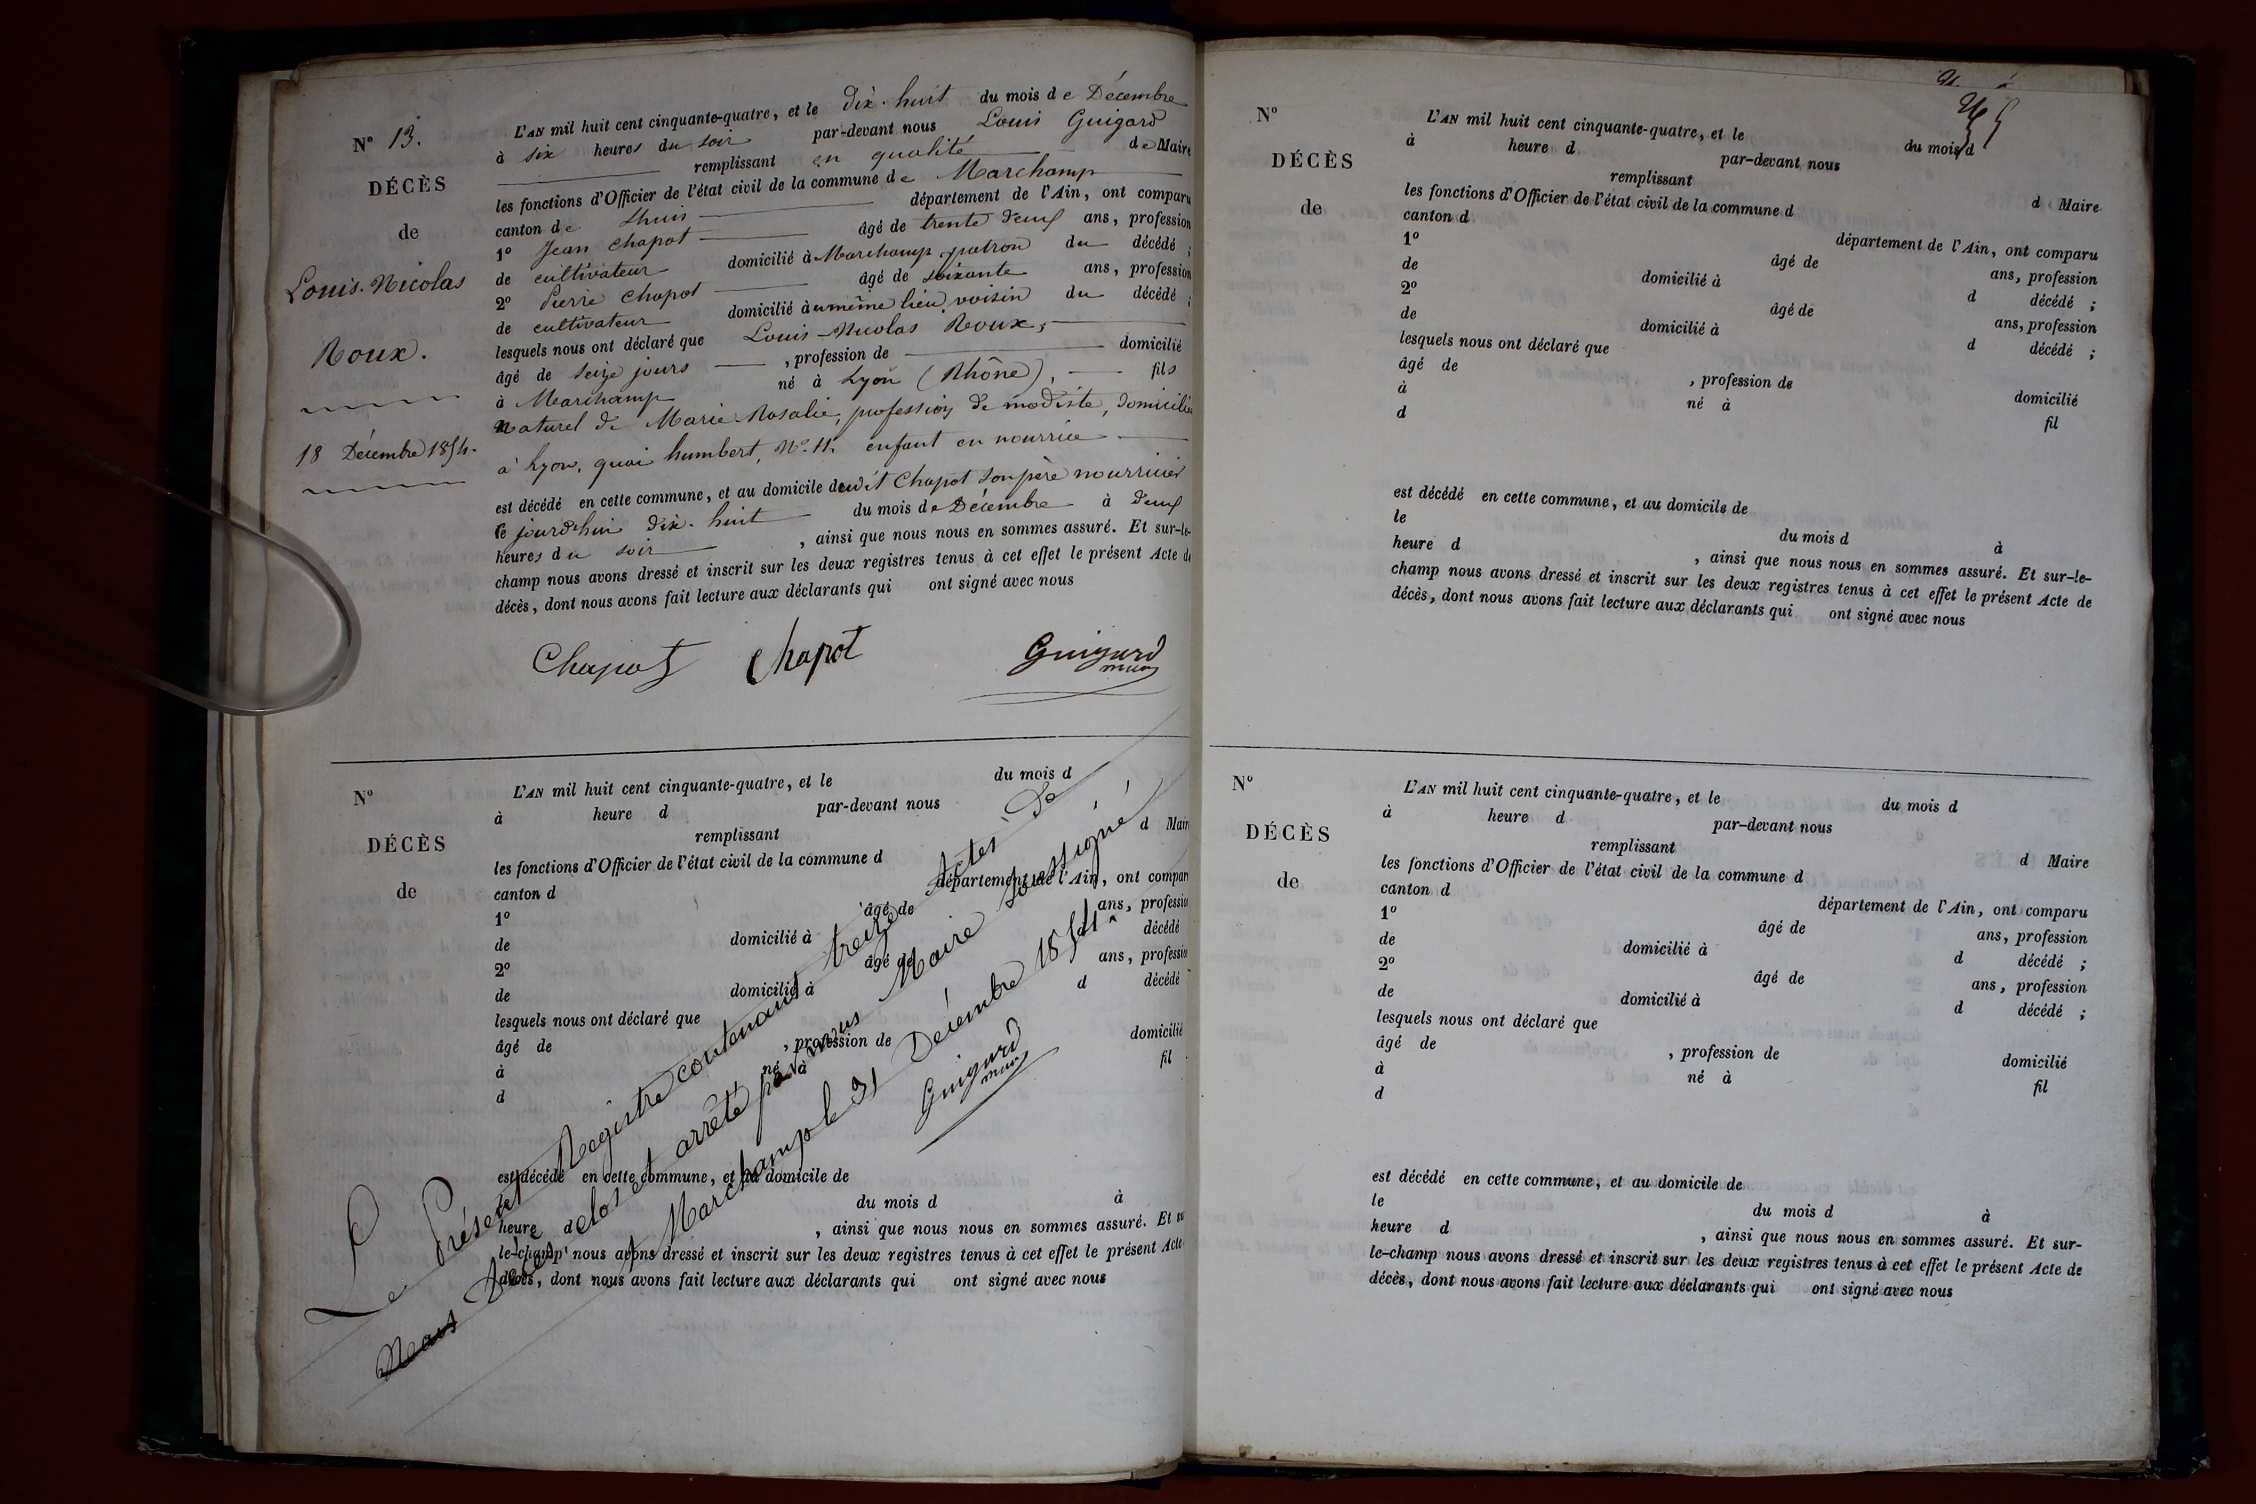 N° 13.
DÉCÈS
de
Louis-Nicolas
Roux.
18 Décembre 1854.
L'AN mil huit cent cinquante-quatre, et le dix-huit du mois de Décembre
à six heures du soir par-devant nous Louis Guigard
remplissant en qualité de Maire
les fonctions d'Officier de l'état civil de la commune de Marchamp
canton de Lhuis département de l'Ain, ont comparu
1° Jean Chapot âgé de trente deux ans, profession
de cultivateur domicilié à Marchamp, patron du décédé ;
2° Pierre Chapot âgé de soixante ans, profession
de cultivateur domicilié au même lieu, voisin du décédé ;
lesquels nous ont déclaré que Louis-Nicolas Roux,
âgé de seize jours , profession de domicilié
à Marchamp né à Lyon (Rhône), fils
naturel de Marie Rosalie, profession de modiste, domiciliée
à Lyon, quai humbert, N° 11. enfant en nourrice
est décédé en cette commune, et au domicile dudit Chapot son père nourricier
le jourd'hui dix-huit du mois de Décembre à deux
heures du soir , ainsi que nous nous en sommes assuré. Et sur-le-
champ nous avons dressé et inscrit sur les deux registres tenus à cet effet le présent Acte de
décès, dont nous avons fait lecture aux déclarants qui ont signé avec nous
Chapot Chapot Guigard
maire
N°
DÉCÈS
de
L'AN mil huit cent cinquante-quatre, et le du mois d
à heure d par-devant nous
remplissant d Maire
les fonctions d'Officier de l'état civil de la commune d
canton d département de l'Ain, ont comparu
1° âgé de ans, profession
de domicilié à décédé
2° âgé de ans, profession
de domicilié à d décédé
lesquels nous ont déclaré que
âgé de , profession de domicilié
à né à fil
d
est décédé en cette commune, et au domicile de
le du mois d à
heure d , ainsi que nous nous en sommes assuré. Et sur-
le-champ nous avons dressé et inscrit sur les deux registres tenus à cet effet le présent Acte
décès, dont nous avons fait lecture aux déclarants qui ont signé avec nous
Le Présent Registre contenant treize Actes de
Décès clos et arrêté par nous Maire soussigné
à Marchamp le 31 Décembre 1854.
Guigard
maire
N°
DÉCÈS
de
L'AN mil huit cent cinquante-quatre, et le du mois d
à heure d par-devant nous
remplissant d Maire
les fonctions d'Officier de l'état civil de la commune d
canton d département de l'Ain, ont comparu
1° âgé de ans, profession
de domicilié à d décédé ;
2° âgé de ans, profession
de domicilié à d décédé ;
lesquels nous ont déclaré que
âgé de , profession de domicilié
à né à fil
d
est décédé en cette commune, et au domicile de
le du mois d à
heure d , ainsi que nous nous en sommes assuré. Et sur-le-
champ nous avons dressé et inscrit sur les deux registres tenus à cet effet le présent Acte de
décès, dont nous avons fait lecture aux déclarants qui ont signé avec nous
N°
DÉCÈS
de
L'AN mil huit cent cinquante-quatre, et le du mois d
à heure d par-devant nous
remplissant d Maire
les fonctions d'Officier de l'état civil de la commune d
canton d département de l'Ain, ont comparu
1° âgé de ans, profession
de domicilié à d décédé ;
2° âgé de ans, profession
de domicilié à d décédé ;
lesquels nous ont déclaré que
âgé de , profession de domicilié
à né à fil
d
est décédé en cette commune, et au domicile de
le du mois d à
heure d , ainsi que nous nous en sommes assuré. Et sur-
le-champ nous avons dressé et inscrit sur les deux registres tenus à cet effet le présent Acte de
décès, dont nous avons fait lecture aux déclarants qui ont signé avec nous